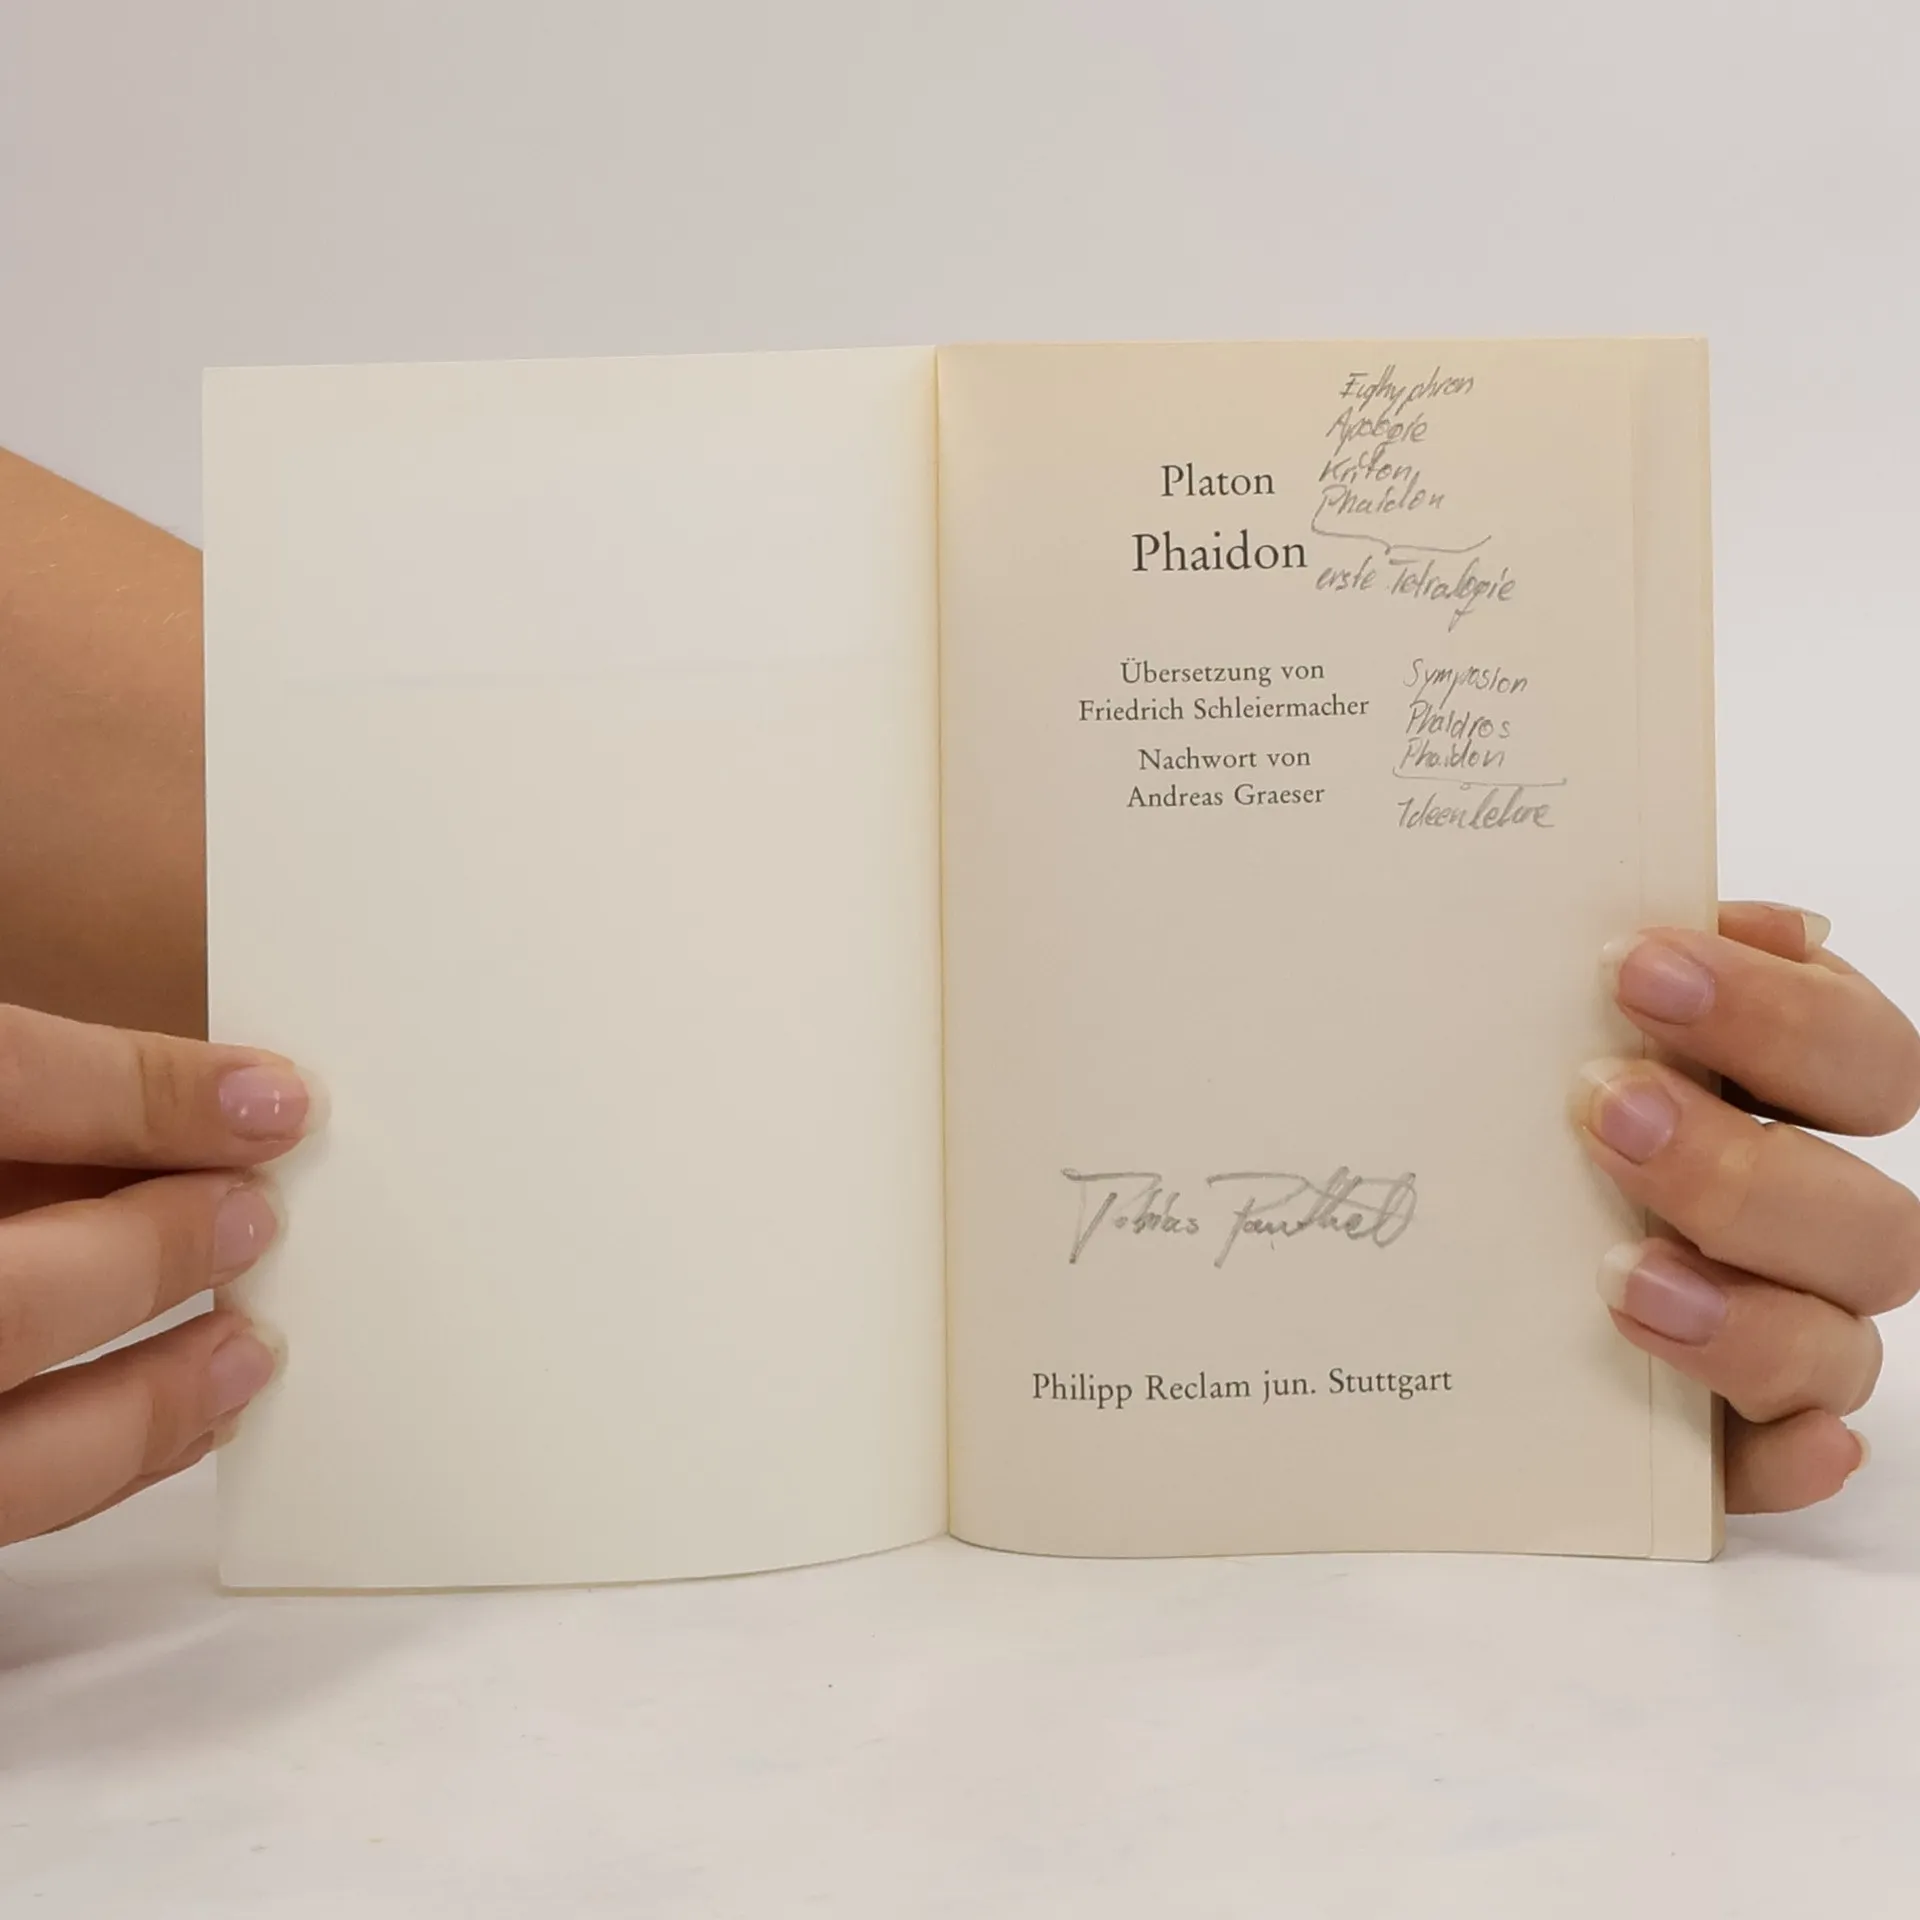 Euthyphron
Apologie
Kriton
Phaidon
erste Tetralogie
Platon
Phaidon
Übersetzung von
Friedrich Schleiermacher
Nachwort von
Andreas Graeser
Symposion
Phaidros
Phaidon
Ideenlehre
Tobias
Philipp Reclam jun. Stuttgart